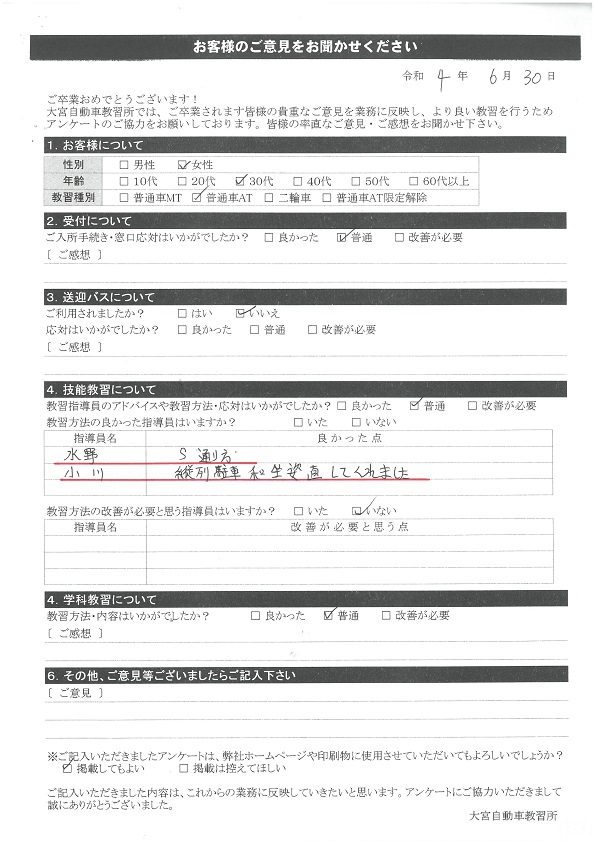 お客様のご意見をお聞かせください
令和 4 年 6 月 30 日
ご卒業おめでとうございます！
大宮自動車教習所では、ご卒業されます皆様の貴重なご意見を業務に反映し、より良い教習を行うため
アンケートのご協力をお願いしております。皆様の率直なご意見・ご感想をお聞かせ下さい。
1. お客様について
性別 □ 男性 ☑ 女性
年齢 □ 10代 □ 20代 ☑ 30代 □ 40代 □ 50代 □ 60代以上
教習種別 □ 普通車MT ☑ 普通車AT □ 二輪車 □ 普通車AT限定解除
2. 受付について
ご入所手続き・窓口応対はいかがでしたか？ □ 良かった ☑ 普通 □ 改善が必要
［ ご感想 ］
3. 送迎バスについて
ご利用されましたか？ □ はい ☑ いいえ
応対はいかがでしたか？ □ 良かった □ 普通 □ 改善が必要
［ ご感想 ］
4. 技能教習について
教習指導員のアドバイスや教習方法・応対はいかがでしたか？ □ 良かった ☑ 普通 □ 改善が必要
教習方法の良かった指導員はいますか？ □ いた □ いない
指導員名 良かった点
水野 S 通り方
小川 縦列駐車 和坐姿直してくれました
教習方法の改善が必要と思う指導員はいますか？ □ いた ☑ いない
指導員名 改善が必要と思う点
4. 学科教習について
教習方法・内容はいかがでしたか？ □ 良かった ☑ 普通 □ 改善が必要
［ ご感想 ］
6. その他、ご意見等ございましたらご記入下さい
［ ご意見 ］
※ご記入いただきましたアンケートは、弊社ホームページや印刷物に使用させていただいてもよろしいでしょうか？
☑ 掲載してもよい □ 掲載は控えてほしい
ご記入いただきました内容は、これからの業務に反映していきたいと思います。アンケートにご協力いただきまして
誠にありがとうございました。
大宮自動車教習所